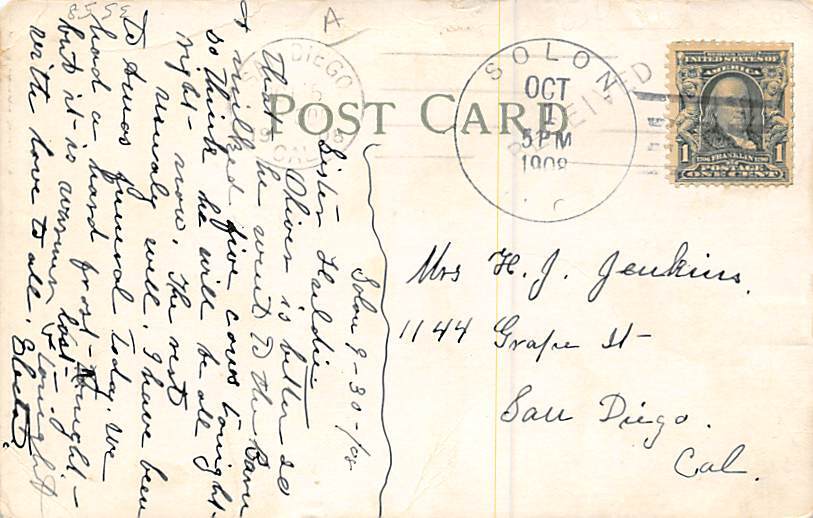 8559
A
POST CARD
SAN DIEGO
CAL.
SOLON
OCT
1
5 PM
1908
RECEIVED
UNITED STATES OF
AMERICA
1 FRANKLIN 1
POSTAGE
ONE CENT
Mrs H. J. Jenkins,
1144 Grape St
San Diego.
Cal.
Solon 9-30-/08
Sister
Oliver is better so
that he went to the barn
& milked five cows tonight-
so think he will be all
right- now. The rest
usualy well. I have been
to Amos funeral today. We
had a hard frost- last- night-
but it- is warmer tonight
with love to all. Electa